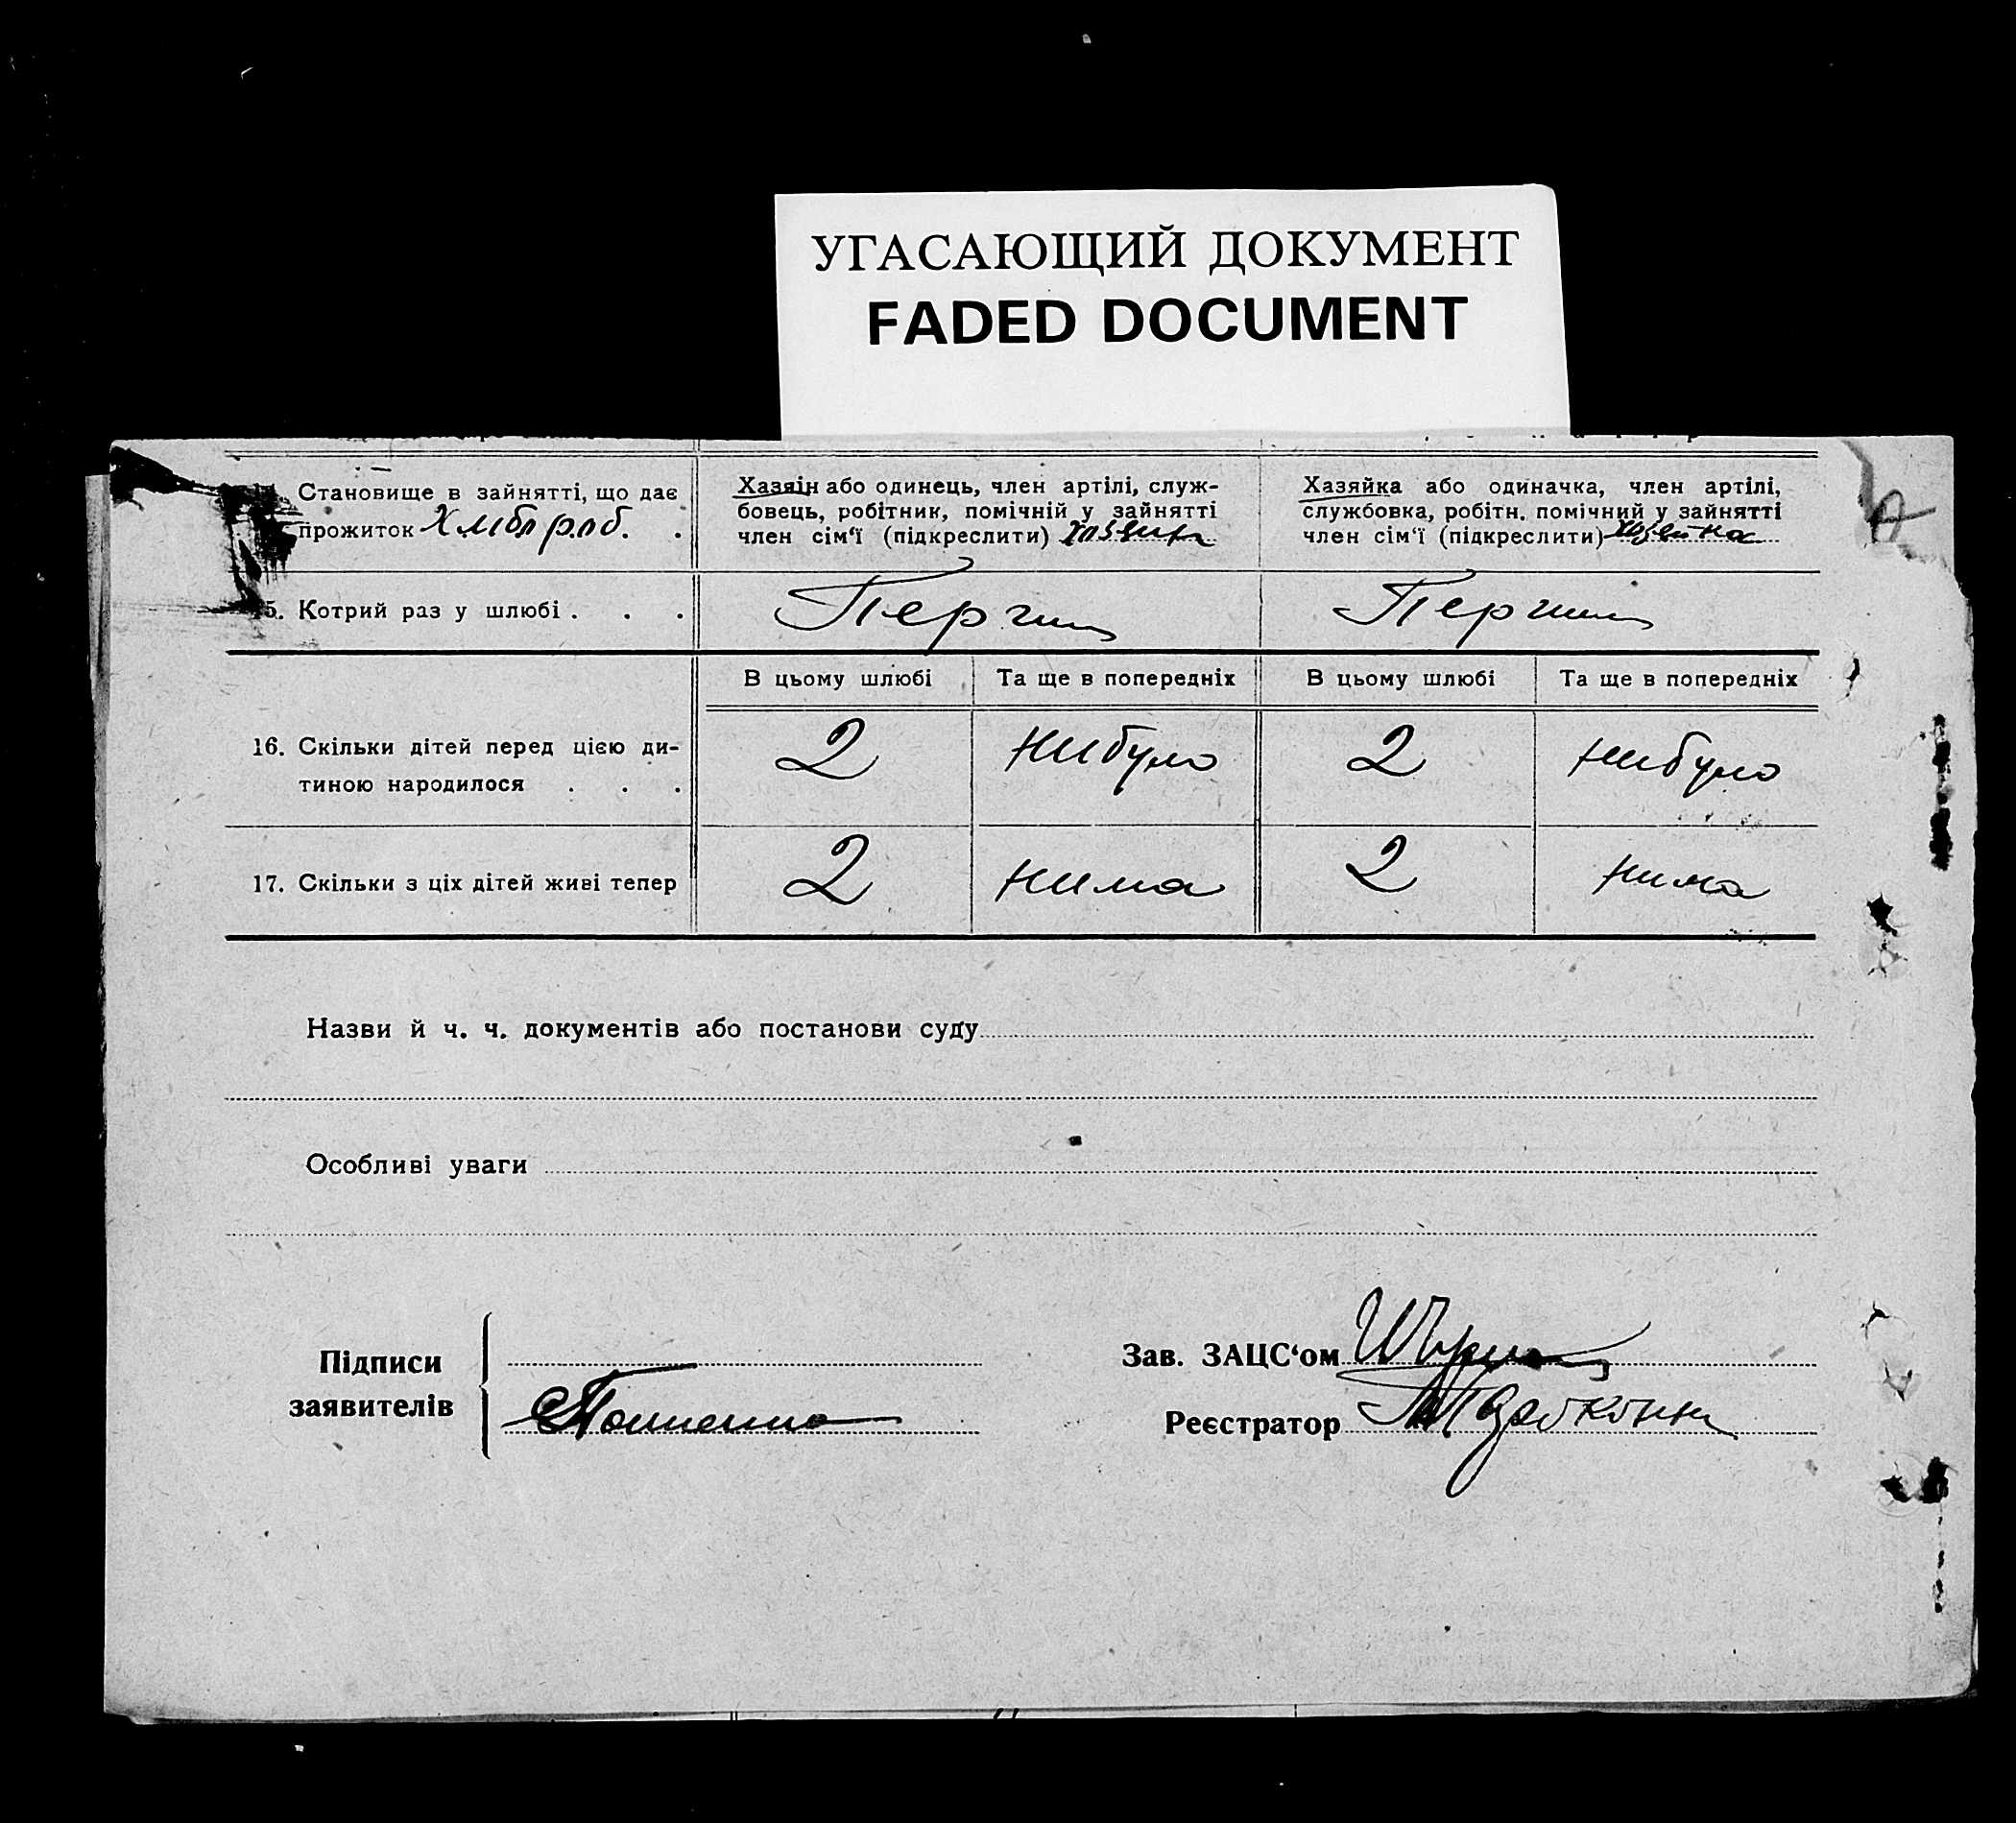 УГАСАЮЩИЙ ДОКУМЕНТ
FADED DOCUMENT
Становище в зайнятті, що дає
прожиток Хлібороб. .
Хазяїн або одинець, член артілі, служ-
бовець, робітник, помічній у зайнятті
член сім‘ї (підкреслити)
Хазяйка або одиначка, член артілі,
службовка, робітн. помічний у зайнятті
член сім‘ї (підкреслити)
5. Котрий раз у шлюбі . . .
Перший
Перший
В цьому шлюбі
Та ще в попередніх
В цьому шлюбі
Та ще в попередніх
16. Скільки дітей перед цією ди-
тиною народилося . . .
2
нибуло
2
нибуло
17. Скільки з ціх дітей живі тепер
2
нима
2
нима
Назви й ч. ч. документів або постанови суду
Особливі уваги
Підписи
заявителів
Зав. ЗАЦС‘ом
Реєстратор